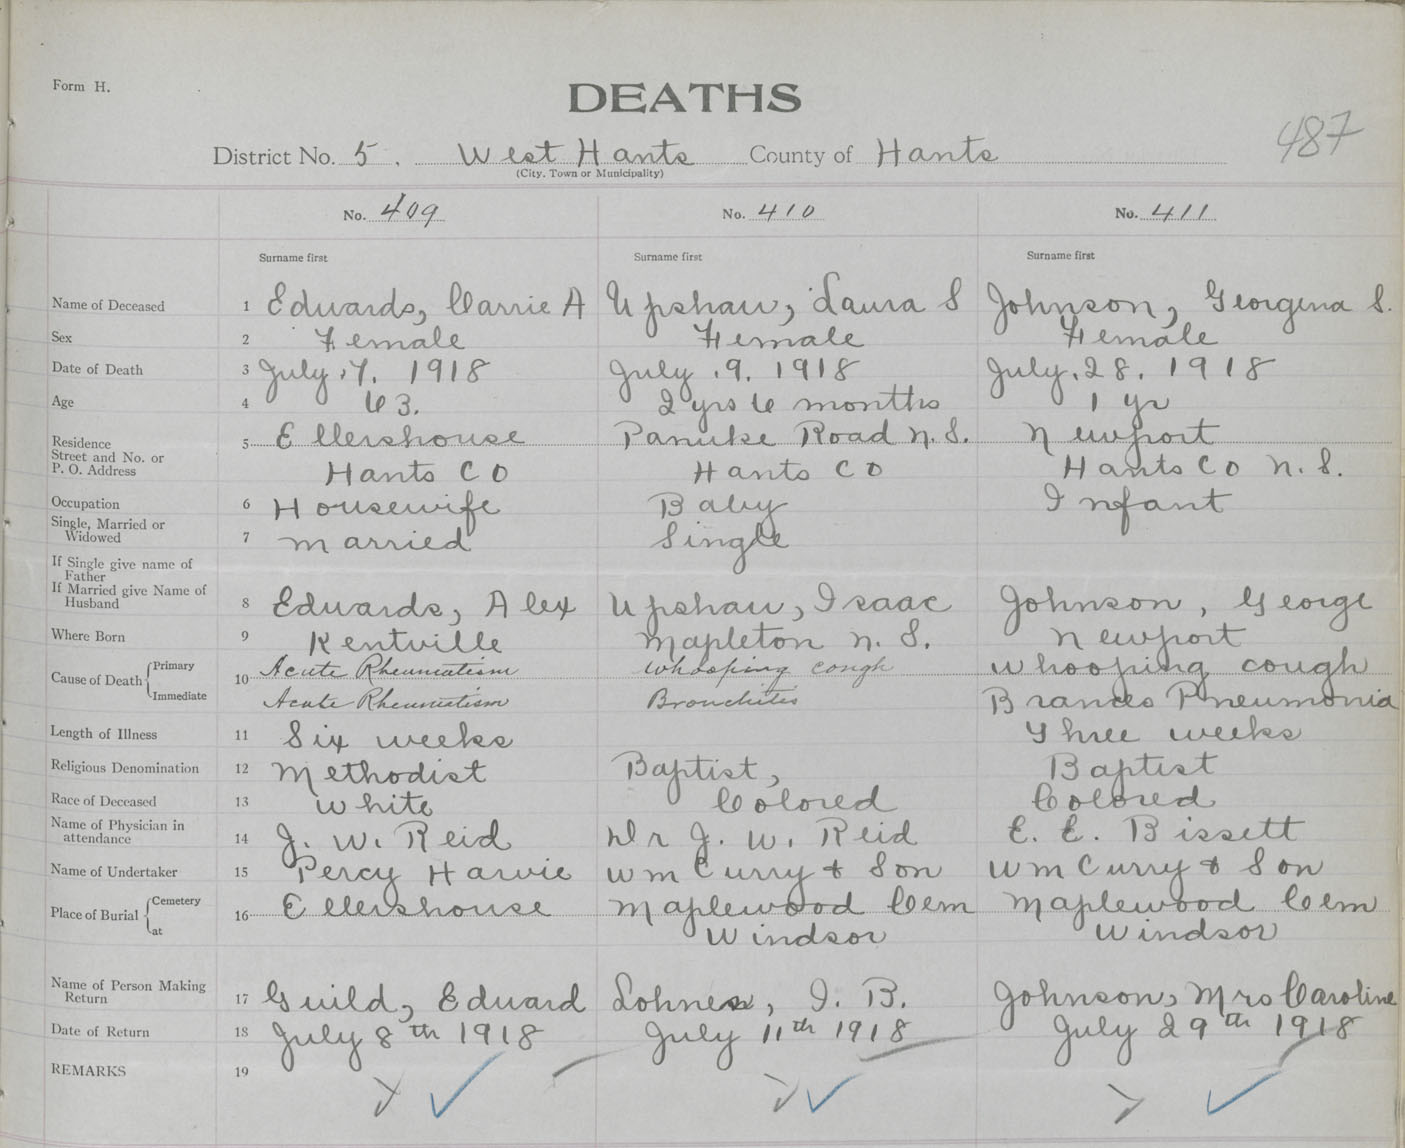 Form H.
DEATHS
487
District No. 5. West Hants County of Hants
(City, Town or Municipality)
No. 409 No. 410 No. 411
Surname first Surname first Surname first
Name of Deceased 1 Edwards, Carrie A Upshaw, Laura S Johnson, Georgina S.
Sex 2 Female Female Female
Date of Death 3 July, 7. 1918 July .9. 1918 July. 28. 1918
Age 4 63. 2 yrs 6 months 1 yr
Residence 5 Ellershouse Panuke Road N. S. Newport
Street and No. or
P. O. Address Hants Co Hants Co Hants Co N. S.
Occupation 6 Housewife Baby Infant
Single, Married or
Widowed 7 Married Single
If Single give name of
Father
If Married give Name of
Husband 8 Edwards, Alex Upshaw, Isaac Johnson, George
Where Born 9 Kentville Mapleton N. S. Newport
Cause of Death Primary 10 Acute Rheumatism Whooping cough Whooping cough
Immediate Acute Rheumatism Bronchitis Pneumonia
Length of Illness 11 Six weeks Three weeks
Religious Denomination 12 Methodist Baptist, Baptist
Race of Deceased 13 White Colored Colored
Name of Physician in
attendance 14 J. W. Reid Dr J. W. Reid E. E. Bissett
Name of Undertaker 15 Percy Harvie Wm Curry & Son Wm Curry & Son
Place of Burial Cemetery 16 Ellershouse Maplewood Cem Maplewood Cem
at Windsor Windsor
Name of Person Making
Return 17 Guild, Edward I. B. Johnson, Mrs Caroline
Date of Return 18 July 8th 1918 July 11th 1918 July 29th 1918
REMARKS 19